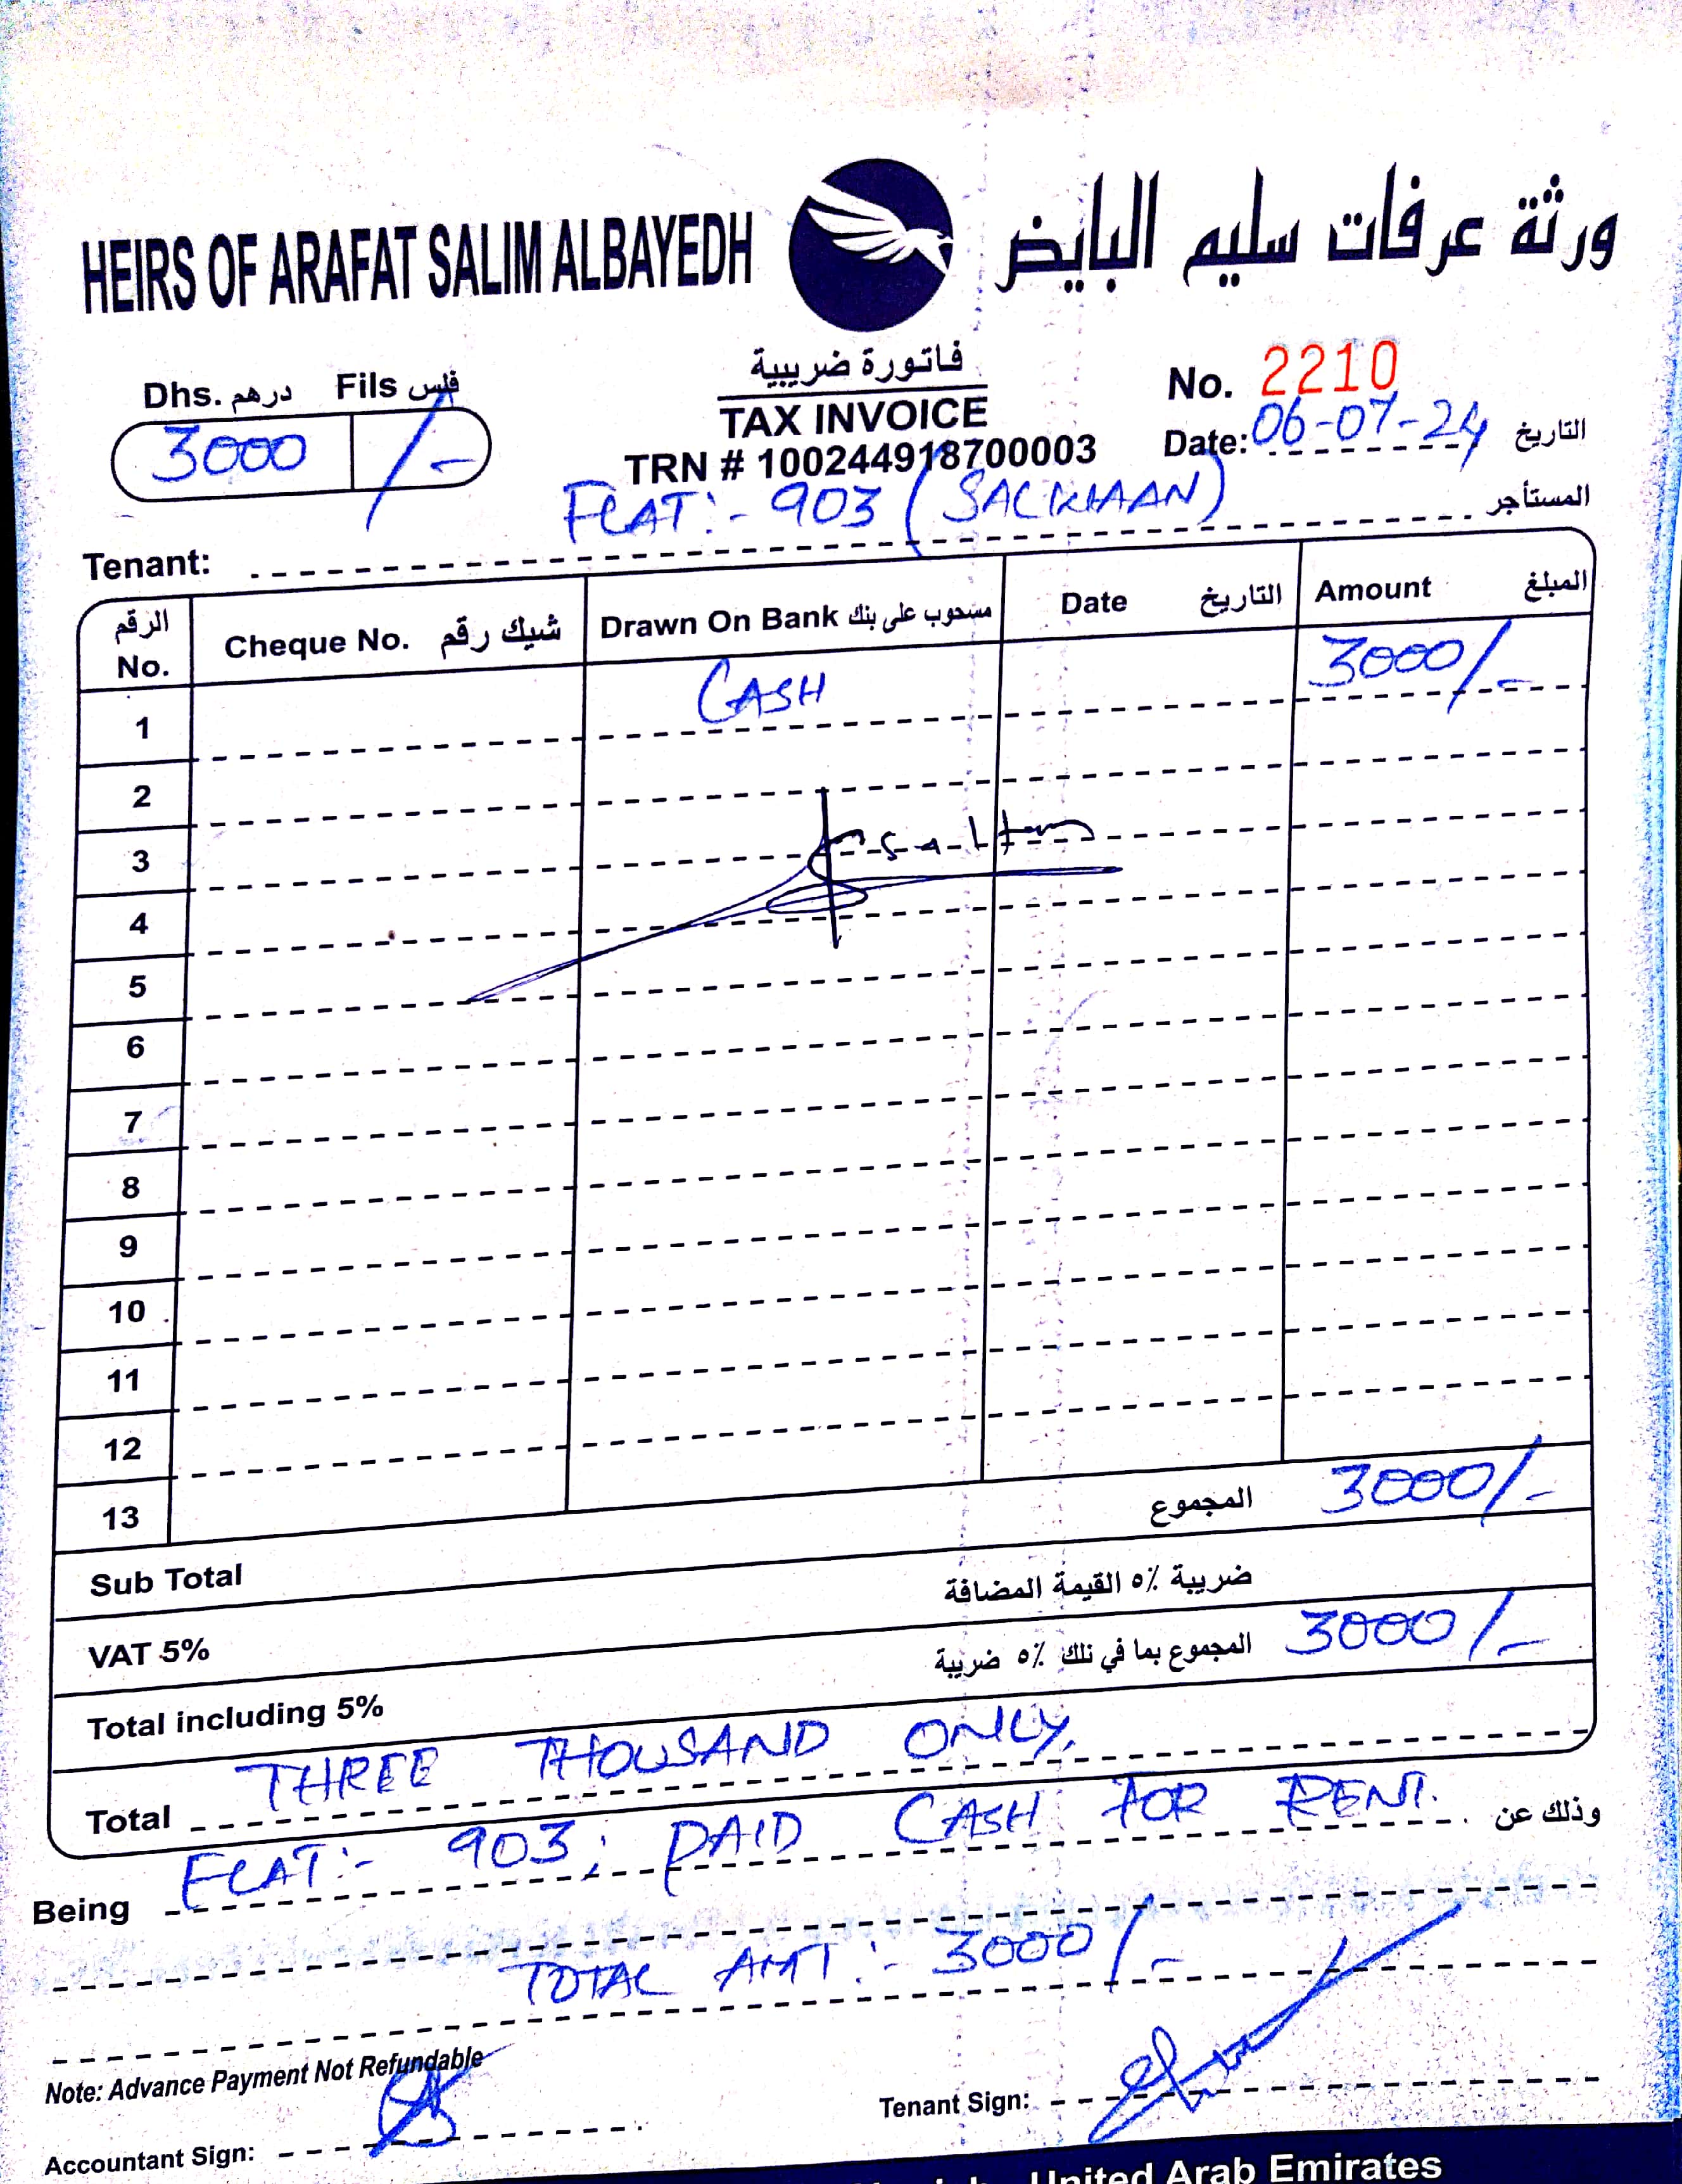 HEIRS OF ARAFAT SALIM ALBAYEDH ورثة عرفات سليم البايض
Dhs. درهم Fils فلس
3000 /-
فاتورة ضريبية
TAX INVOICE
TRN # 100244918700003
No. 2210
Date: 06-07-24 التاريخ
Tenant: FLAT:- 903 (SALKHAAN) المستأجر
الرقم No. Cheque No. شيك رقم Drawn On Bank مسحوب على بنك Date التاريخ Amount المبلغ
1 CASH 3000/-
2
3
4
5
6
7
8
9
10
11
12
13
Sub Total المجموع 3000/-
VAT 5% ضريبة ٥٪ القيمة المضافة
Total including 5% المجموع بما في ذلك ٥٪ ضريبة 3000/-
Total THREE THOUSAND ONLY.
Being FLAT:- 903; PAID CASH FOR RENT. وذلك عن
TOTAL AMT:- 3000/-
Note: Advance Payment Not Refundable
Accountant Sign: Tenant Sign:
United Arab Emirates